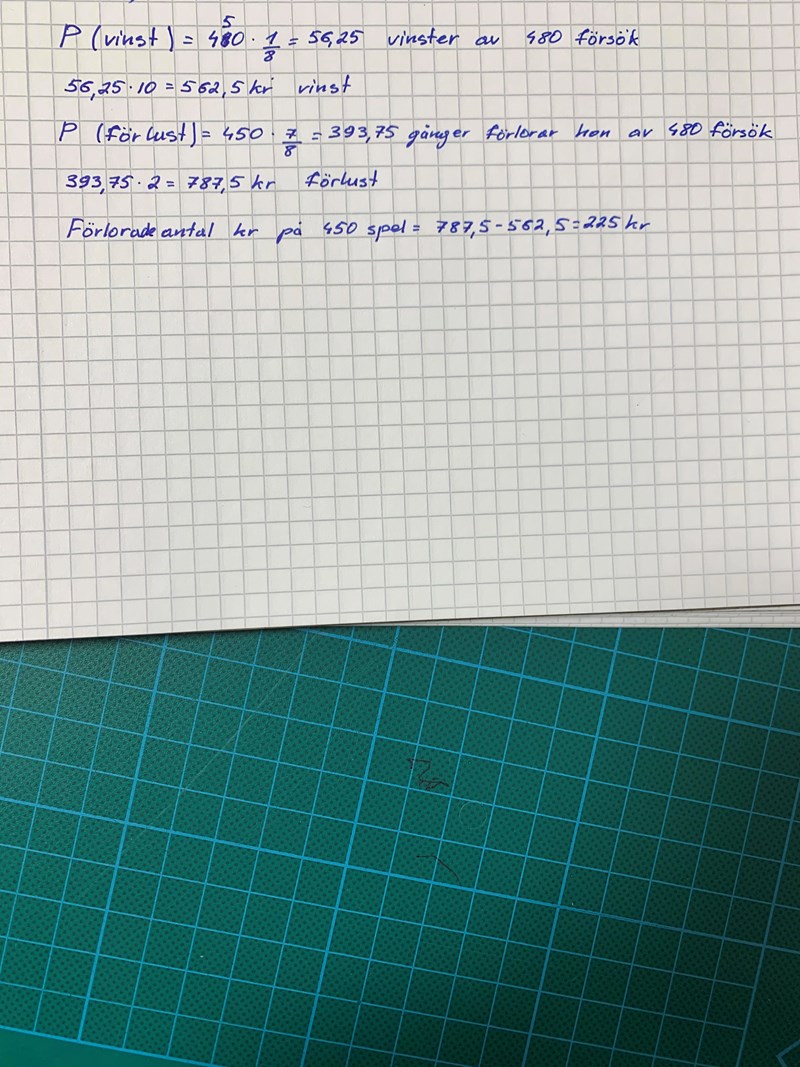 P (vinst) = 450 · 1/8 = 56,25 vinster av 480 försök
56,25 · 10 = 562,5 kr vinst
P (förlust) = 450 · 7/8 = 393,75 gånger förlorar hon av 480 försök
393,75 · 2 = 787,5 kr förlust
Förlorade antal kr på 450 spel = 787,5 - 562,5 = 225 kr